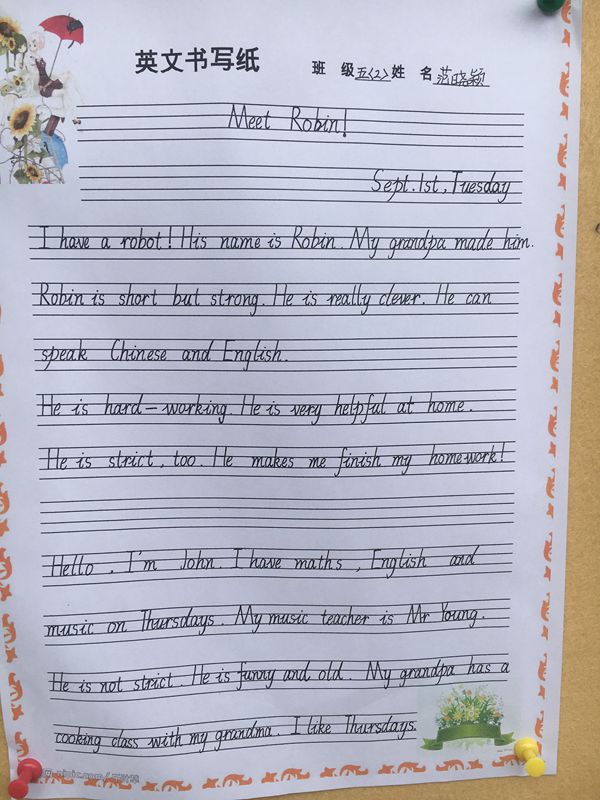 英文书写纸
班 级 五(2) 姓 名 范晓颖
Meet Robin!
Sept.1st, Tuesday
I have a robot! His name is Robin. My grandpa made him.
Robin is short but strong. He is really clever. He can
speak Chinese and English.
He is hard-working. He is very helpful at home.
He is strict, too. He makes me finish my homework!
Hello, I'm John. I have maths, English and
music on Thursdays. My music teacher is Mr Young.
He is not strict. He is funny and old. My grandpa has a
cooking class with my grandma. I like Thursdays.